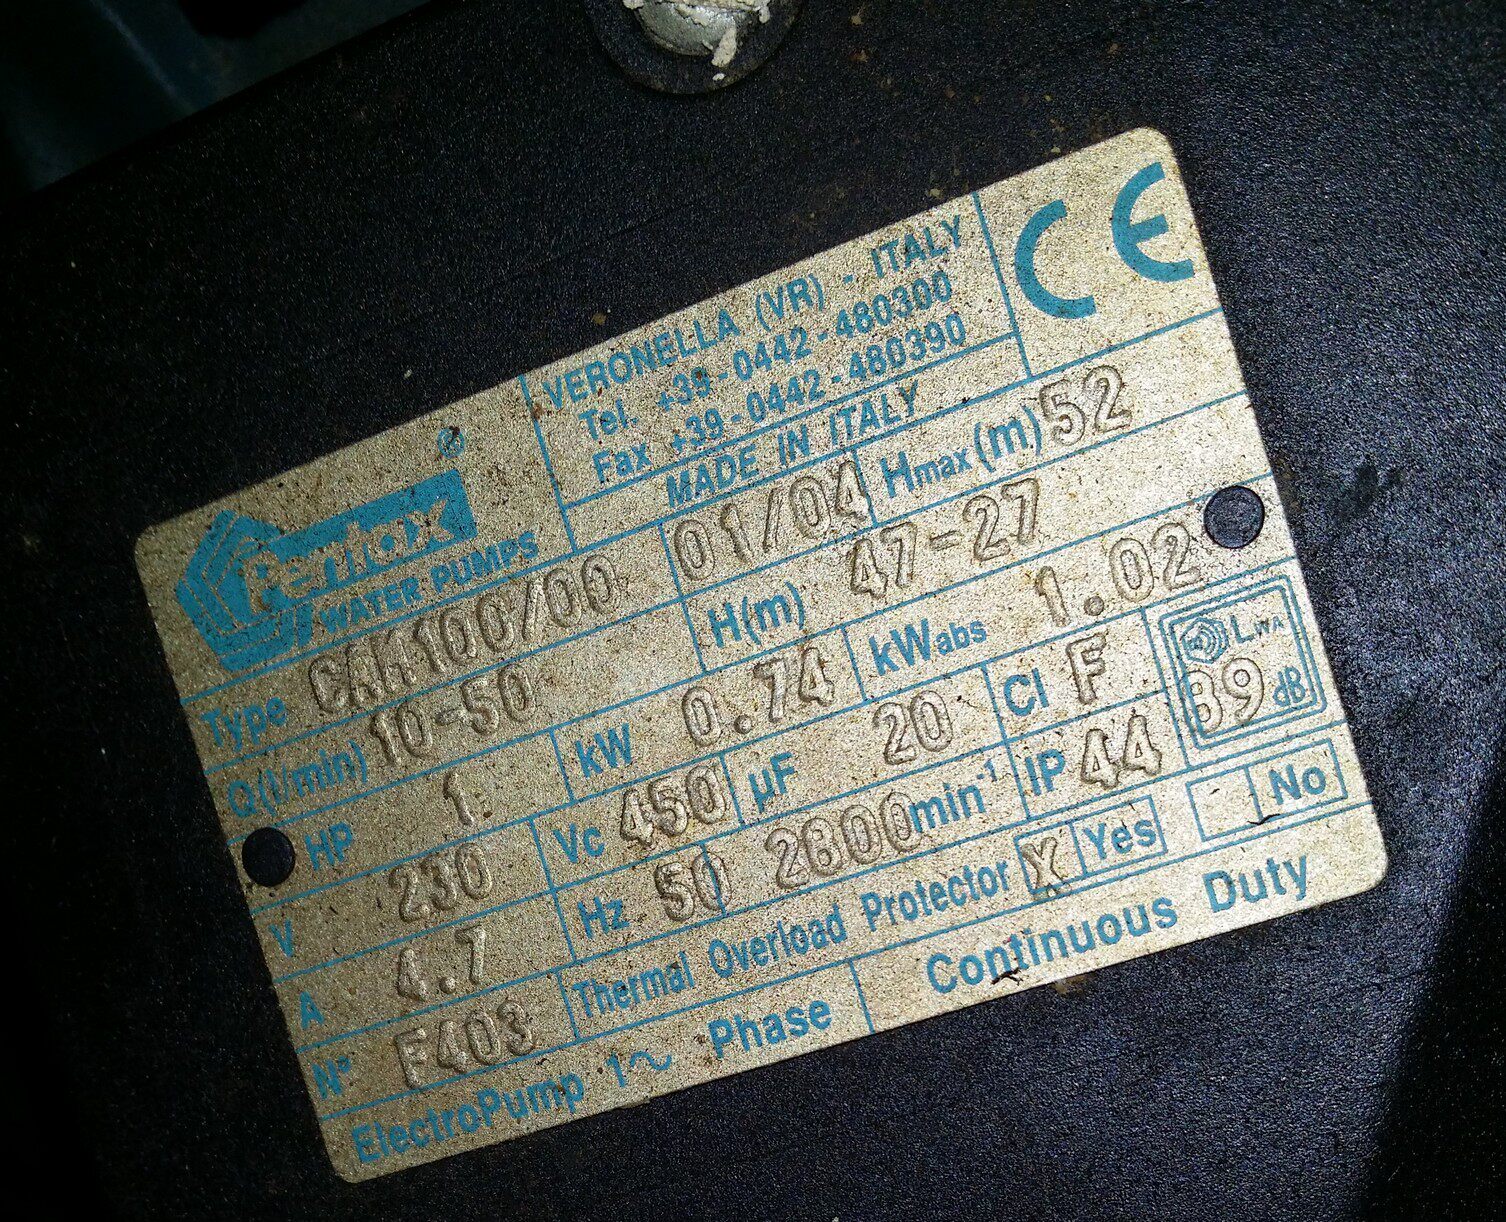 Pentax ®
WATER PUMPS
VERONELLA (VR) - ITALY
Tel. +39-0442-480300
Fax +39-0442-480390
MADE IN ITALY
CE
Type CAM100/00 01/04 Hmax(m) 52
Q(l/min) 10-50 H(m) 47-27
HP 1 kW 0.74 kWabs 1.02
V 230 Vc 450 µF 20 Cl F
LWA
89 dB
A 4.7 Hz 50 2800 min-1 IP 44
N° F403 Thermal Overload Protector X Yes No
ElectroPump 1~ Phase Continuous Duty